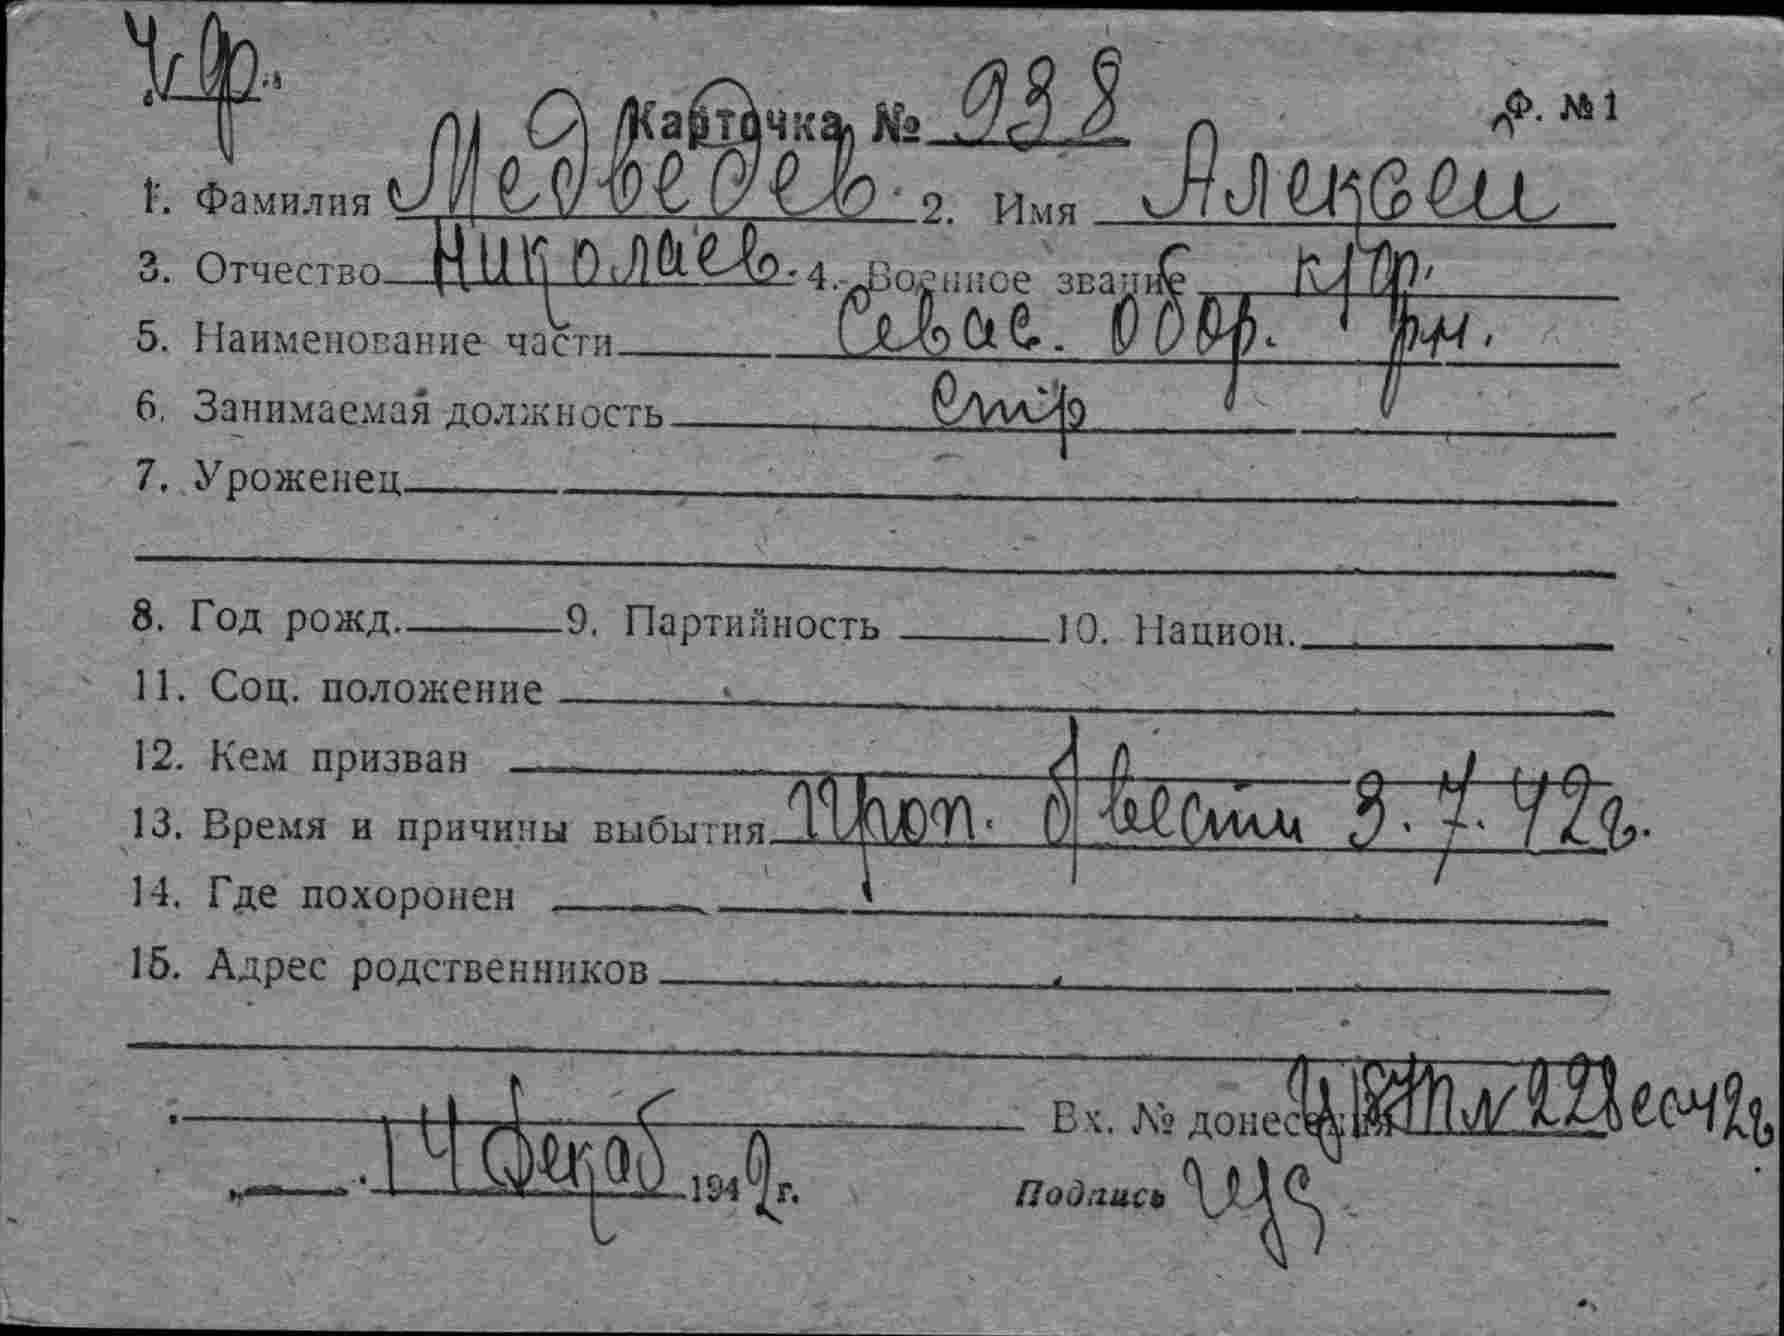 Ч.Ф.
Карточка № 938 Ф. № 1
1. Фамилия Медведев 2. Имя Алексей
3. Отчество Николаев. 4. Военное звание кр
5. Наименование части Севас. обор. рн.
6. Занимаемая должность стр
7. Уроженец
8. Год рожд. 9. Партийность 10. Национ.
11. Соц. положение
12. Кем призван
13. Время и причины выбытия Проп. б/вести 3.7.42г.
14. Где похоронен
15. Адрес родственников
Вх. № донес
14 декаб 1942 г. Подпись